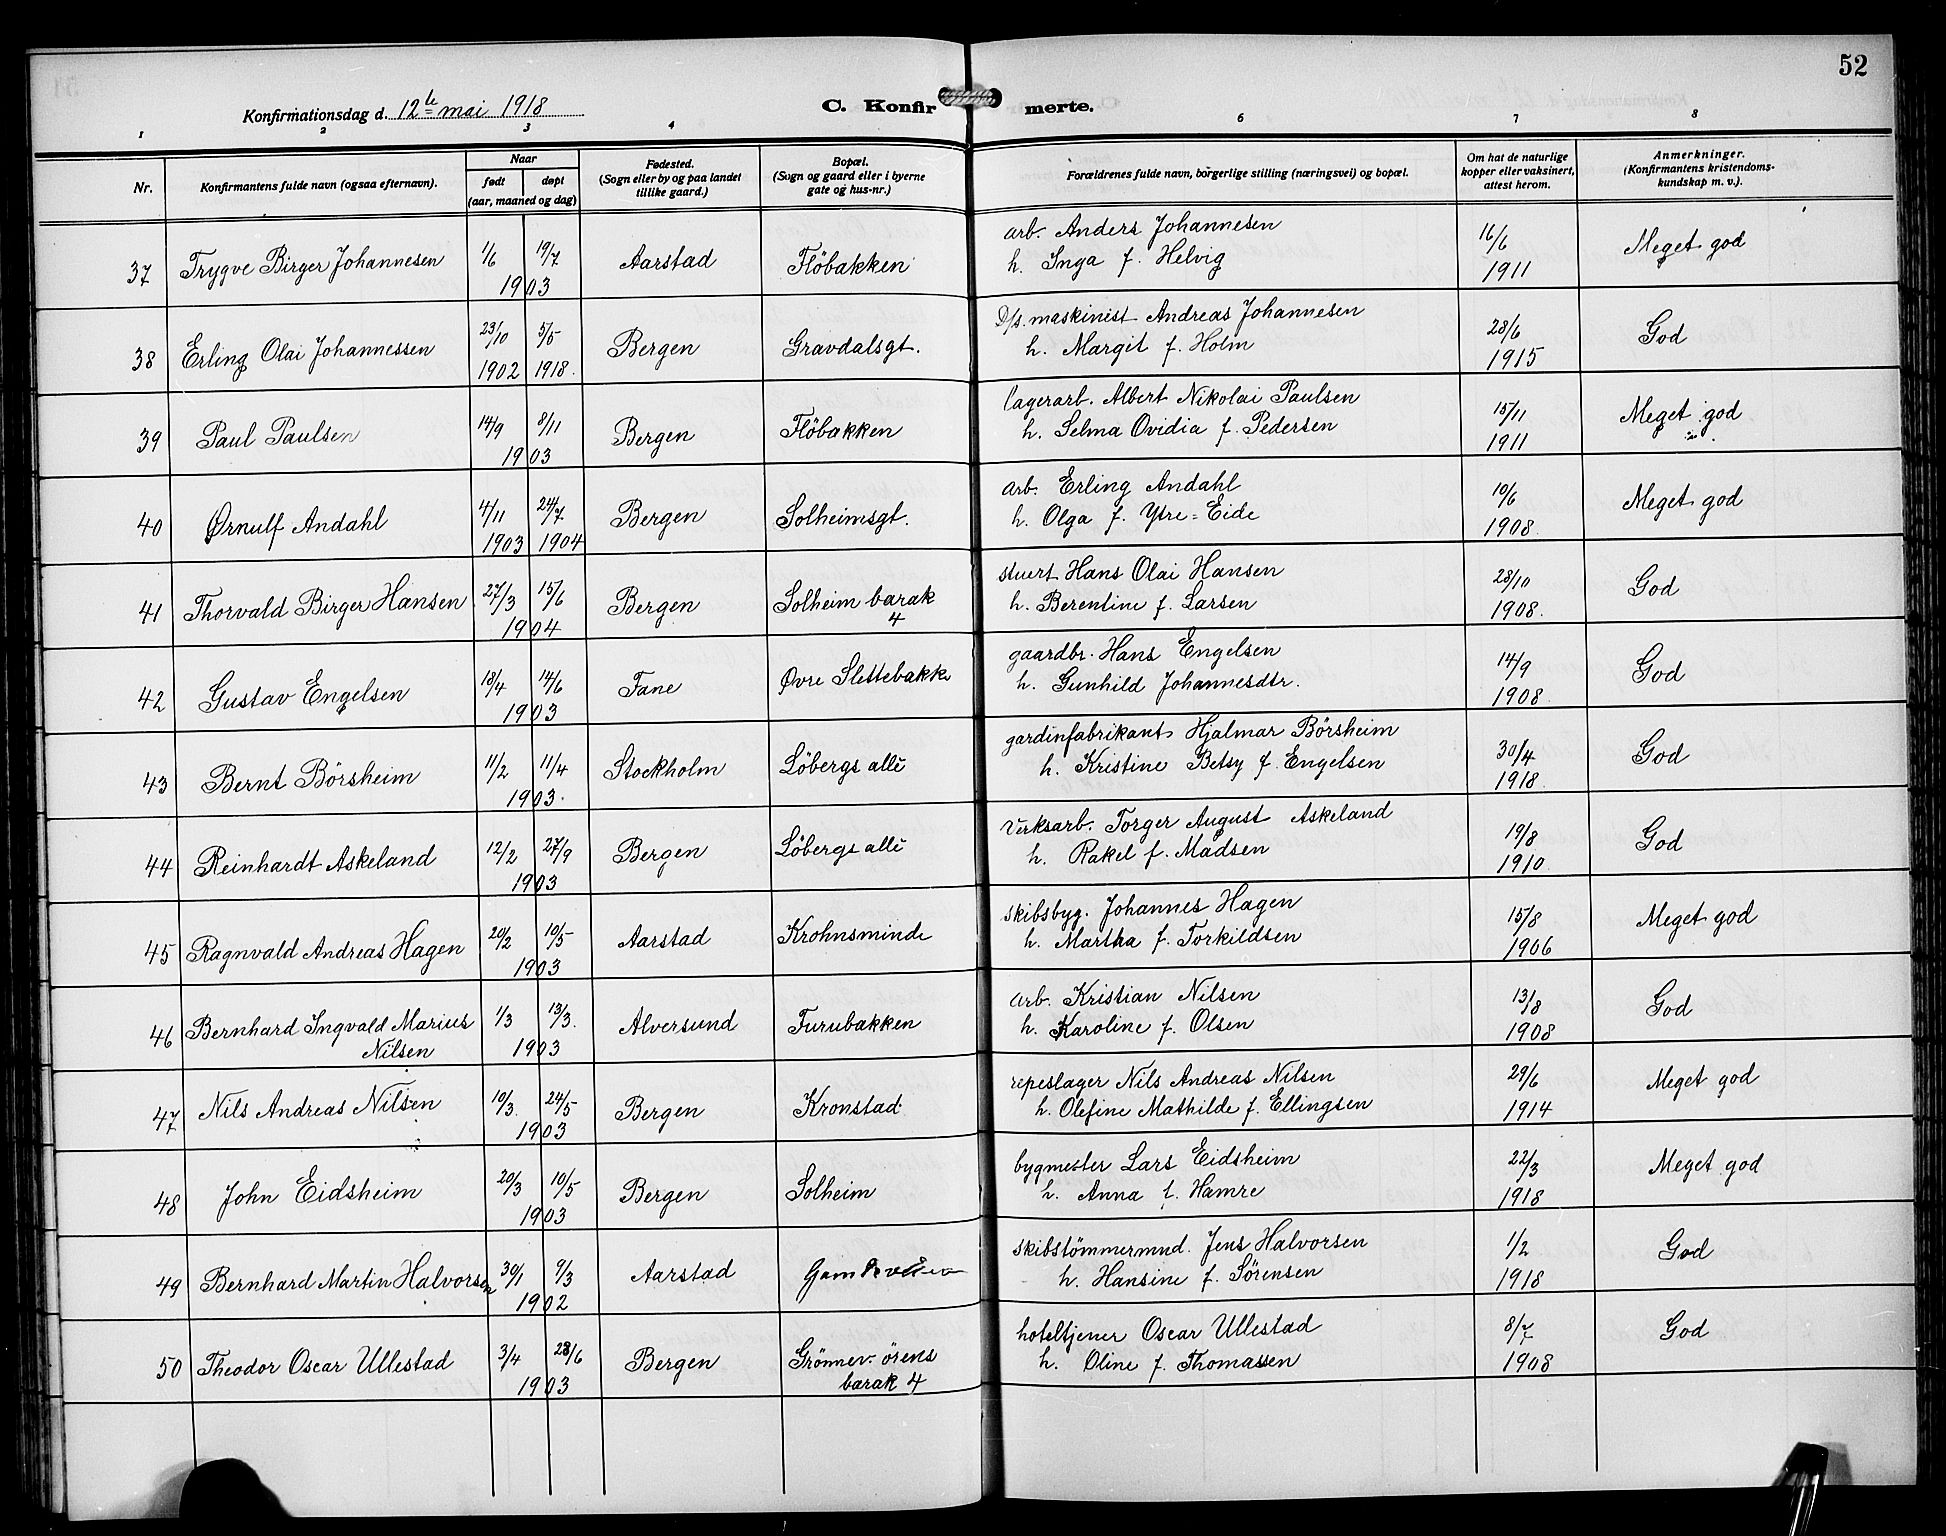 52
Konfirmationsdag d. 12te mai 1918 C. Konfirmerte.
1 2 3 4 5 6 7 8
Nr. Konfirmantens fulde navn (ogsaa efternavn). Naar født døpt (aar, maaned og dag) Fødested. (Sogn eller by og paa landet tillike gaard.) Bopæl. (Sogn og gaard eller i byerne gate og hus-nr.) Forældrenes fulde navn, borgerlige stilling (næringsvei) og bopæl. Om hat de naturlige kopper eller vaksinert, attest herom. Anmerkninger. (Konfirmantens kristendoms-kundskap m. v.).
37 Trygve Birger Johannesen 1/6 19/7 1903 Aarstad Flöbakken arb. Anders Johannesen 16/6 Meget god
h. Inga f. Helvig 1911
38 Erling Olai Johannessen 23/10 1902 5/5 1918. Bergen Gravdalsgt. D/s. maskinist Andreas Johannesen 28/6 God
h. Margit f. Holm 1915
39 Paul Paulsen 14/9 8/11 1903 Bergen Flöbakken lagerarb. Albert Nikolai Paulsen 15/11 Meget god
h. Selma Ovidia f. Pedersen 1911
40 Ørnulf Andahl 4/11 1903 24/7 1904 Bergen Solheimsgt. arb. Erling Andahl 10/6 Meget god
h. Olga f. Ytre=Eide 1908.
41 Thorvald Birger Hansen 27/3 15/6 1904 Bergen Solheim barak 4 stuert Hans Olai Hansen 28/10 God
h. Berentine f. Larsen 1908.
42 Gustav Engelsen 18/4 14/6 1903 Fane Øvre Slettebakke gaardbr. Hans Engelsen 14/9 God
h. Gunhild Johannesdtr. 1908.
43 Bernt Börsheim 11/2 11/4 1903. Stockholm Löbergs allé gardinfabrikant Hjalmar Börsheim 30/4 God
h. Kristine Betsy f. Engelsen 1918.
44 Reinhardt Askeland 12/2 27/9 1903 Bergen Löbergs allé Verksarb. Torger August Askeland 19/8 God
h. Rakel f. Madsen 1910.
45 Ragnvald Andreas Hagen 20/2 10/5 1903 Aarstad Krohnsminde skibsbyg. Johannes Hagen 15/8 Meget god
h. Martha f. Torkildsen 1906
46 Bernhard Ingvald Marius Nilsen 1/3 13/3. 1903 Alversund Furubakken arb. Kristian Nilsen 13/8 God
h. Karoline f. Olsen 1908
47 Nils Andreas Nilsen 10/3. 24/5 1903 Bergen Kronstad repeslager Nils Andreas Nilsen 29/6 Meget god
h. Olefine Mathilde f. Ellingsen 1914
48 John Eidsheim 20/3 10/5 1903 Bergen Solheim bygmester Lars Eidsheim 22/3 Meget god
h. Anna f. Hamre 1918
49 Bernhard Martin Halvorsen 30/1 9/3 1902 Aarstad skibstömmermnd. Jens Halvorsen 1/2 God
h. Hansine f. Sörensen 1918
50 Theodor Oscar Ullestad 3/4 28/6 1903 Bergen Grönnev. örens barak 4 hoteltjener Oscar Ullestad 8/7 God
h. Oline f. Thomassen 1908